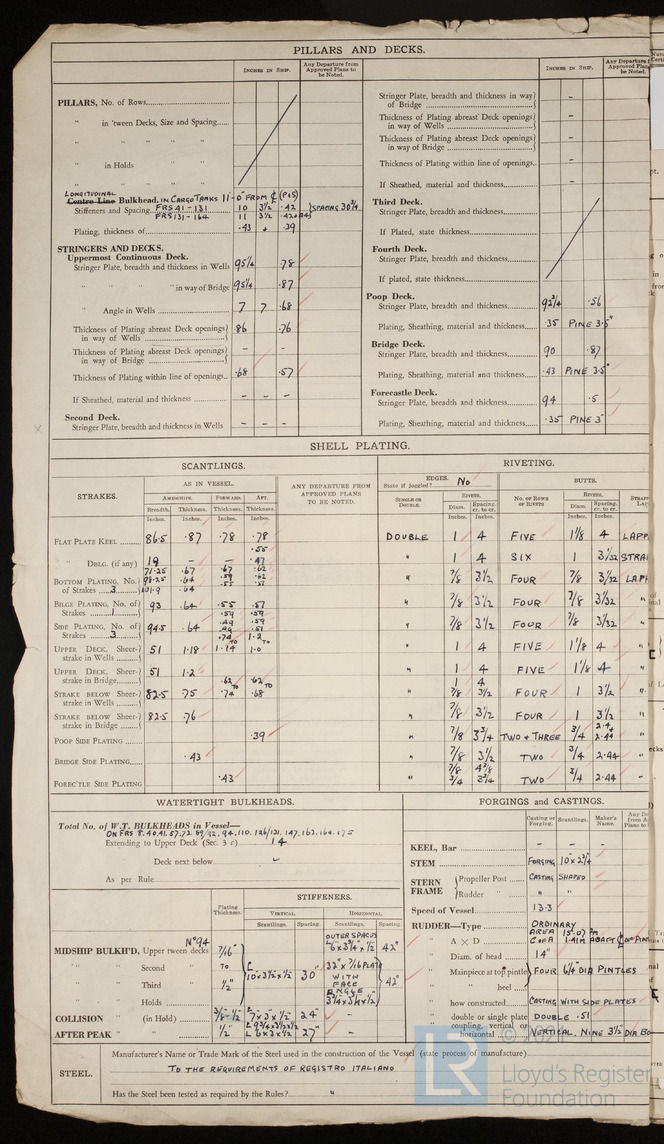 PILLARS AND DECKS.
INCHES IN SHIP.
Any Departure from Approved Plans to be Noted.
PILLARS, No. of Rows
" in 'tween Decks, Size and Spacing
" " " "
" in Holds " "
" " " "
LONGITUDINAL
Centre Line Bulkhead. IN CARGO TANKS 11'-0" FROM ℄ (P&S)
Stiffeners and Spacing FRS 41-131 10 3½ .42 } SPACING 30¾
FRS 131-164 11 3½
Plating, thickness of .43 + .39
STRINGERS AND DECKS.
Uppermost Continuous Deck.
Stringer Plate, breadth and thickness in Wells 95¼ .78
" " " " in way of Bridge 95¼ .87
" Angle in Wells 7 7 .68
Thickness of Plating abreast Deck openings in way of Wells .86 .76
Thickness of Plating abreast Deck openings in way of Bridge - -
Thickness of Plating within line of openings .68 .57
If Sheathed, material and thickness - - -
Second Deck.
Stringer Plate, breadth and thickness in Wells - - -
INCHES IN SHIP.
Stringer Plate, breadth and thickness in way of Bridge -
Thickness of Plating abreast Deck openings in way of Wells -
Thickness of Plating abreast Deck openings in way of Bridge -
Thickness of Plating within line of openings -
If Sheathed, material and thickness -
Third Deck.
Stringer Plate, breadth and thickness
If Plated, state thickness
Fourth Deck.
Stringer Plate, breadth and thickness
If plated, state thickness
Poop Deck.
Stringer Plate, breadth and thickness 92¾ .56
Plating, Sheathing, material and thickness .35 PINE 3.5"
Bridge Deck.
Stringer Plate, breadth and thickness 90 .87
Plating, Sheathing, material and thickness .43 PINE 3.5"
Forecastle Deck.
Stringer Plate, breadth and thickness 94 .5
Plating, Sheathing, material and thickness .35 PINE 3"
SHELL PLATING.
SCANTLINGS.
RIVETING.
STRAKES.
AS IN VESSEL.
ANY DEPARTURE FROM APPROVED PLANS TO BE NOTED.
EDGES. No
State if Joggled?
BUTTS.
AMIDSHIPS. FORWARD. AFT.
Breadth. Thickness. Thickness. Thickness.
Inches. Inches. Inches. Inches.
SINGLE OR DOUBLE. RIVETS. Diam. Spacing cr. to cr. No. OF ROWS OF RIVETS RIVETS. Diam. Spacing cr. to cr.
FLAT PLATE KEEL 86.5 .87 .78 .78 DOUBLE 1 4 FIVE 1⅛ 4 LAPP
" DBLG. (if any) 19 - - .55 .47 " 1 4 SIX 1 3½ STRA
BOTTOM PLATING, No. of Strakes 3 71.25 .67 .67 .62 " ⅞ 3½ FOUR ⅞ 3½ LAP
98.25 .64 .59 .62
101.9 .64 .55 .57
BILGE PLATING, No. of Strakes 1 93 .64 .55 .57 " ⅞ 3½ FOUR ⅞ "
SIDE PLATING, No. of Strakes 3 94.5 .64 " ⅞ 3½ FOUR ⅞ "
UPPER DECK, Sheerstrake in Wells 51 1.18 1.14 1.0 " 1 4 FIVE 1⅛ 4 "
UPPER DECK, Sheerstrake in Bridge 51 1.2 " 1 4 FIVE 1⅛ 4 "
STRAKE BELOW Sheerstrake in Wells 82.5 .75 .62 TO .74 .62 TO .68 " 1 4 ⅞ 3½ FOUR 1 3½ "
STRAKE BELOW Sheerstrake in Bridge 82.5 .76 " ⅞ 3½ FOUR 1 3½ "
POOP SIDE PLATING .39 " ⅞ 3¾ TWO & THREE ¾ 2.44 "
BRIDGE SIDE PLATING .43 " ⅞ 3½ TWO ¾ 2.44 "
FOREC'TLE SIDE PLATING .43 " ¾ TWO ¾ 2.44
WATERTIGHT BULKHEADS.
Total No. of W.T. BULKHEADS in Vessel—
ON FRS 8.40.41.57.72.89/92.94.110.126/131.147.163.164.175
Extending to Upper Deck (Sec. 3 c) 14
Deck next below -
As per Rule
Plating Thickness.
STIFFENERS.
VERTICAL. HORIZONTAL.
Scantlings. Spacing. Scantlings. Spacing.
No 94
MIDSHIP BULKH'D, Upper tween decks 7/16" OUTER SPACES 42"
" " Second " TO 10 x 3½ x ½ 30" 32" x 7/16 PLATE
" " Third " ½" WITH FACE ANGLE 42"
" " Holds 3¾ x 3¾ x ½"
COLLISION " (in Hold) ⅜"-½" 7 x 3 x ½" 24" -
AFTER PEAK " " ½" 6 x 3 x ½" 27" -
FORGINGS and CASTINGS.
Casting or Forging. Scantlings. Maker's Name.
KEEL, Bar - - -
STEM FORGING 10 x 2¾
STERN FRAME { Propeller Post CASTING SHAPED
Rudder " " "
Speed of Vessel 13.3
RUDDER—Type ORDINARY
" A X D AREA 15.07 m²
C of A 1.41M ABAFT ℄ OF PINTLES
" Diam. of head 14"
" Mainpiece at top pintle FOUR 6¼ DIA PINTLES
" " heel
" how constructed CASTING WITH SIDE PLATES
" double or single plate DOUBLE .51
" coupling, vertical or horizontal VERTICAL. NINE 3½" DIA BO
STEEL.
Manufacturer's Name or Trade Mark of the Steel used in the construction of the Vessel (state process of manufacture)
TO THE REQUIREMENTS OF REGISTRO ITALIANO
Has the Steel been tested as required by the Rules? "
© 2021
LR
Lloyd's Register
Foundation